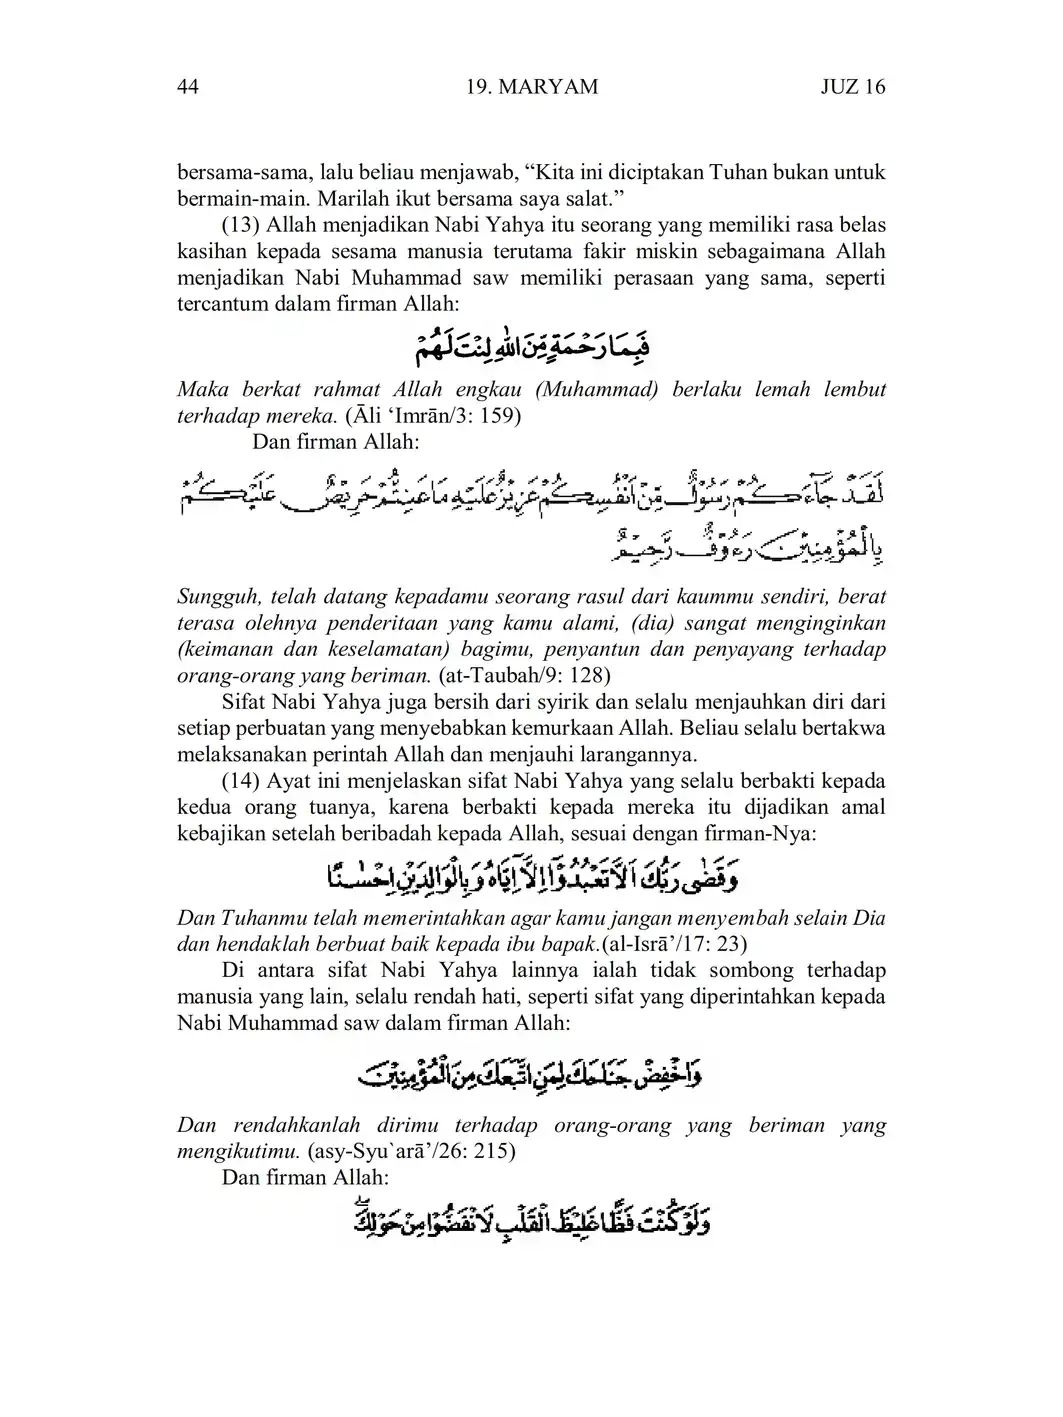 44 19. MARYAM JUZ 16
bersama-sama, lalu beliau menjawab, “Kita ini diciptakan Tuhan bukan untuk
bermain-main. Marilah ikut bersama saya salat.”
(13) Allah menjadikan Nabi Yahya itu seorang yang memiliki rasa belas
kasihan kepada sesama manusia terutama fakir miskin sebagaimana Allah
menjadikan Nabi Muhammad saw memiliki perasaan yang sama, seperti
tercantum dalam firman Allah:
فَبِمَا رَحْمَةٍ مِّنَ اللّٰهِ لِنْتَ لَهُمْ
Maka berkat rahmat Allah engkau (Muhammad) berlaku lemah lembut
terhadap mereka. (Āli ‘Imrān/3: 159)
Dan firman Allah:
لَقَدْ جَاۤءَكُمْ رَسُوْلٌ مِّنْ اَنْفُسِكُمْ عَزِيْزٌ عَلَيْهِ مَا عَنِتُّمْ حَرِيْصٌ عَلَيْكُمْ
بِالْمُؤْمِنِيْنَ رَءُوْفٌ رَّحِيْمٌ
Sungguh, telah datang kepadamu seorang rasul dari kaummu sendiri, berat
terasa olehnya penderitaan yang kamu alami, (dia) sangat menginginkan
(keimanan dan keselamatan) bagimu, penyantun dan penyayang terhadap
orang-orang yang beriman. (at-Taubah/9: 128)
Sifat Nabi Yahya juga bersih dari syirik dan selalu menjauhkan diri dari
setiap perbuatan yang menyebabkan kemurkaan Allah. Beliau selalu bertakwa
melaksanakan perintah Allah dan menjauhi larangannya.
(14) Ayat ini menjelaskan sifat Nabi Yahya yang selalu berbakti kepada
kedua orang tuanya, karena berbakti kepada mereka itu dijadikan amal
kebajikan setelah beribadah kepada Allah, sesuai dengan firman-Nya:
وَقَضٰى رَبُّكَ اَلَّا تَعْبُدُوْٓا اِلَّآ اِيَّاهُ وَبِالْوَالِدَيْنِ اِحْسٰنًا
Dan Tuhanmu telah memerintahkan agar kamu jangan menyembah selain Dia
dan hendaklah berbuat baik kepada ibu bapak.(al-Isrā’/17: 23)
Di antara sifat Nabi Yahya lainnya ialah tidak sombong terhadap
manusia yang lain, selalu rendah hati, seperti sifat yang diperintahkan kepada
Nabi Muhammad saw dalam firman Allah:
وَاخْفِضْ جَنَاحَكَ لِمَنِ اتَّبَعَكَ مِنَ الْمُؤْمِنِيْنَ
Dan rendahkanlah dirimu terhadap orang-orang yang beriman yang
mengikutimu. (asy-Syu`arā’/26: 215)
Dan firman Allah:
وَلَوْ كُنْتَ فَظًّا غَلِيْظَ الْقَلْبِ لَانْفَضُّوْا مِنْ حَوْلِكَۖ